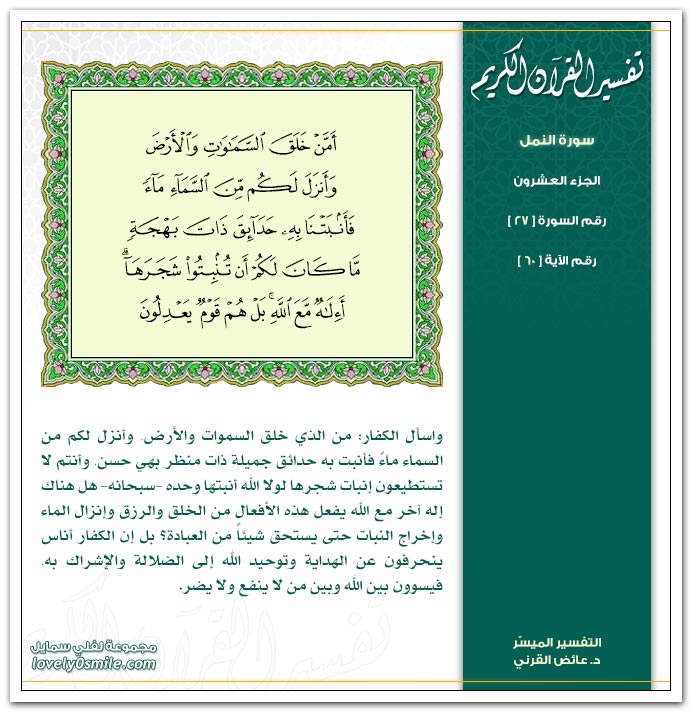 تفسير القرآن الكريم
سورة النمل
الجزء العشرون
رقم السورة [ ٢٧ ]
رقم الآية [ ٦٠ ]
أَمَّنْ خَلَقَ ٱلسَّمَٰوَٰتِ وَٱلْأَرْضَ
وَأَنزَلَ لَكُم مِّنَ ٱلسَّمَآءِ مَآءً
فَأَنۢبَتْنَا بِهِۦ حَدَآئِقَ ذَاتَ بَهْجَةٍ
مَّا كَانَ لَكُمْ أَن تُنۢبِتُوا۟ شَجَرَهَآ ۗ
أَءِلَٰهٌ مَّعَ ٱللَّهِ ۚ بَلْ هُمْ قَوْمٌ يَعْدِلُونَ
واسأل الكفار: من الذي خلق السموات والأرض، وأنزل لكم من
السماء ماءً فأنبت به حدائق جميلة ذات منظر بهي حسن، وأنتم لا
تستطيعون إنبات شجرها لولا الله أنبتها وحده –سبحانه– هل هناك
إله آخر مع الله يفعل هذه الأفعال من الخلق والرزق وإنزال الماء
وإخراج النبات حتى يستحق شيئاً من العبادة؟ بل إن الكفار أناس
ينحرفون عن الهداية وتوحيد الله إلى الضلالة والإشراك به،
فيسوون بين الله وبين من لا ينفع ولا يضر.
تفسير القرآن الكريم
مجموعة لفلي سمايل
lovely0smile.com
التفسير الميسّر
د. عائض القرني